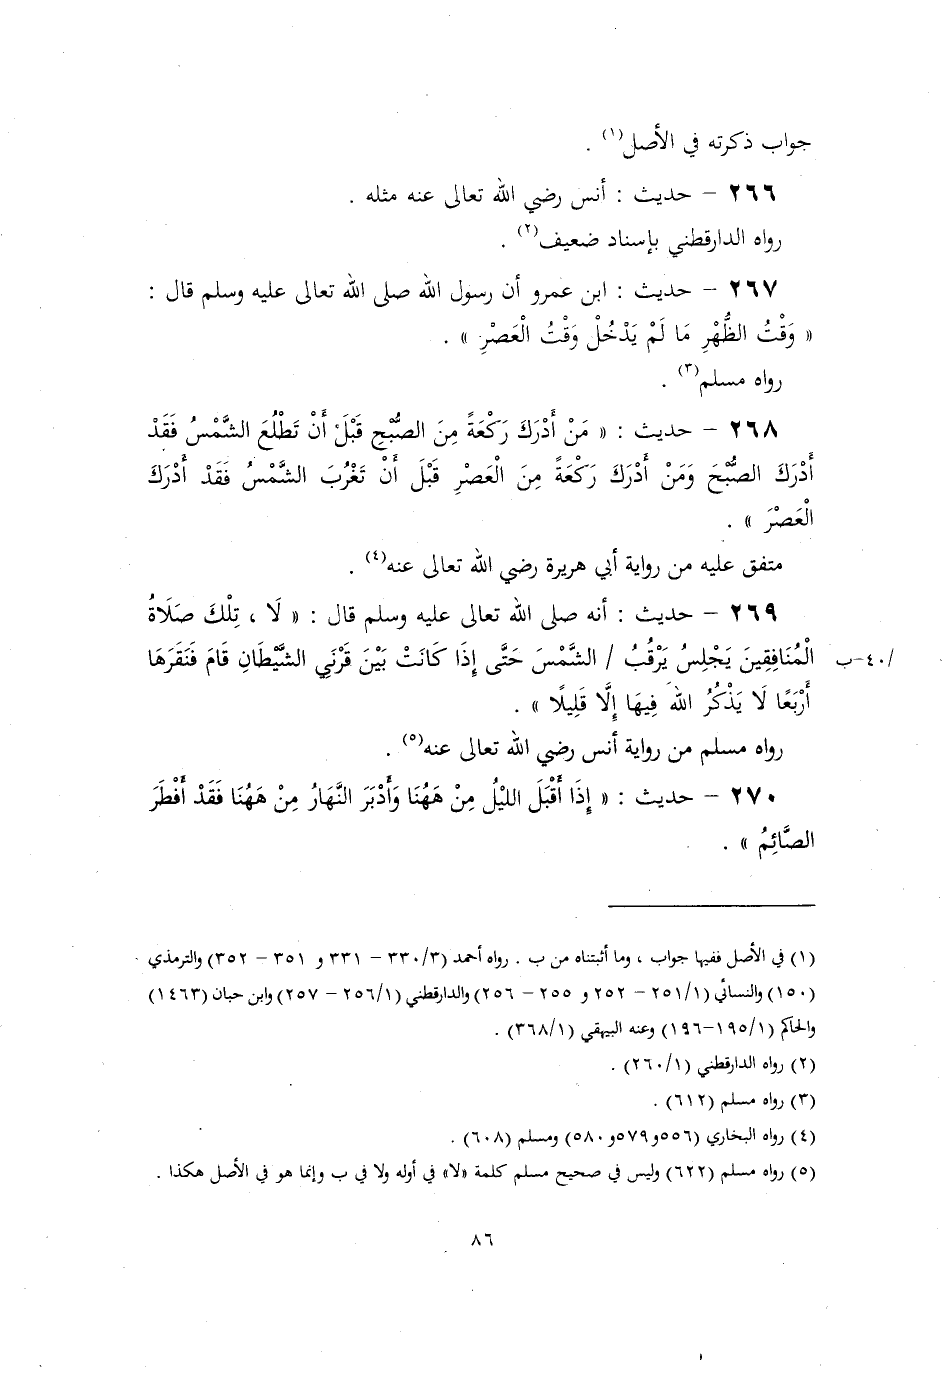 جواب ذكرته في الأصل(١) .
٢٦٦ – حديث : أنس رضي الله تعالى عنه مثله .
رواه الدارقطني بإسناد ضعيف(٢) .
٢٦٧ – حديث : ابن عمرو أن رسول الله صلى الله تعالى عليه وسلم قال :
« وَقْتُ الظُّهْرِ مَا لَمْ يَدْخُلْ وَقْتُ الْعَصْرِ » .
رواه مسلم(٣) .
٢٦٨ – حديث : « مَنْ أَدْرَكَ رَكْعَةً مِنَ الصُّبْحِ قَبْلَ أَنْ تَطْلُعَ الشَّمْسُ فَقَدْ
أَدْرَكَ الصُّبْحَ وَمَنْ أَدْرَكَ رَكْعَةً مِنَ الْعَصْرِ قَبْلَ أَنْ تَغْرُبَ الشَّمْسُ فَقَدْ أَدْرَكَ
الْعَصْرَ » .
متفق عليه من رواية أبي هريرة رضي الله تعالى عنه(٤) .
٢٦٩ – حديث : أنه صلى الله تعالى عليه وسلم قال : « لَا ، تِلْكَ صَلَاةُ
/٤٠–ب الْمُنَافِقِينَ يَجْلِسُ يَرْقُبُ / الشَّمْسَ حَتَّى إِذَا كَانَتْ بَيْنَ قَرْنَيِ الشَّيْطَانِ قَامَ فَنَقَرَهَا
أَرْبَعًا لَا يَذْكُرُ اللهَ فِيهَا إِلَّا قَلِيلًا » .
رواه مسلم من رواية أنس رضي الله تعالى عنه(٥) .
٢٧٠ – حديث : « إِذَا أَقْبَلَ اللَّيْلُ مِنْ هَهُنَا وَأَدْبَرَ النَّهَارُ مِنْ هَهُنَا فَقَدْ أَفْطَرَ
الصَّائِمُ » .
(١) في الأصل ففيها جواب ، وما أثبتناه من ب . رواه أحمد (٣/ ٣٣٠ – ٣٣١ و ٣٥١ – ٣٥٢) والترمذي
(١٥٠) والنسائي (١/ ٢٥١ – ٢٥٢ و ٢٥٥ – ٢٥٦) والدارقطني (١/ ٢٥٦ – ٢٥٧) وابن حبان (١٤٦٣)
والحاكم (١/ ١٩٥–١٩٦) وعنه البيهقي (١/ ٣٦٨) .
(٢) رواه الدارقطني (١/ ٢٦٠) .
(٣) رواه مسلم (٦١٢) .
(٤) رواه البخاري (٥٥٦و٥٧٩و٥٨٠) ومسلم (٦٠٨) .
(٥) رواه مسلم (٦٢٢) وليس في صحيح مسلم كلمة «لا» في أوله ولا في ب وإنما هو في الأصل هكذا .
٨٦